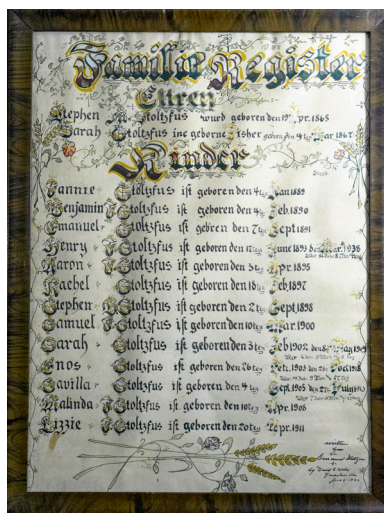 Familie Register
Eltern
Stephen F. Stoltzfus wurd geboren den 19ten Apr. 1865
Sarah Stoltzfus ine geborne Fisher geboren den 4ten Mar 1867
Kinder
Fannie F Stoltzfus ist geboren den 4ten Jan 1889
Benjamin F Stoltzfus ist geboren den 4ten Feb. 1890
Emanuel F Stoltzfus ist gebren den 2ten Sept 1891
Henry F Stoltzfus ist geboren den 12ten June 1893 1938
Aaron F Stoltzfus ist geboren den 5ten Apr 1895
Rachel F Stoltzfus ist geboren den 18ten Feb 1897
Stephen F Stoltzfus ist geboren den 2ten Sept 1898
Samuel F Stoltzfus ist geboren den 10ten Mar 1900
Sarah F Stoltzfus ist geboren den 3ten Feb 1902
Enos F Stoltzfus ist geboren den 26ten 1903
Savilla F Stoltzfus ist geboren den 4ten Sept. 1905
Malinda F Stoltzfus ist geboren den 10ten Apr. 1908
Lizzie F Stoltzfus ist geboren den 20ten Apr. 1911
written
for